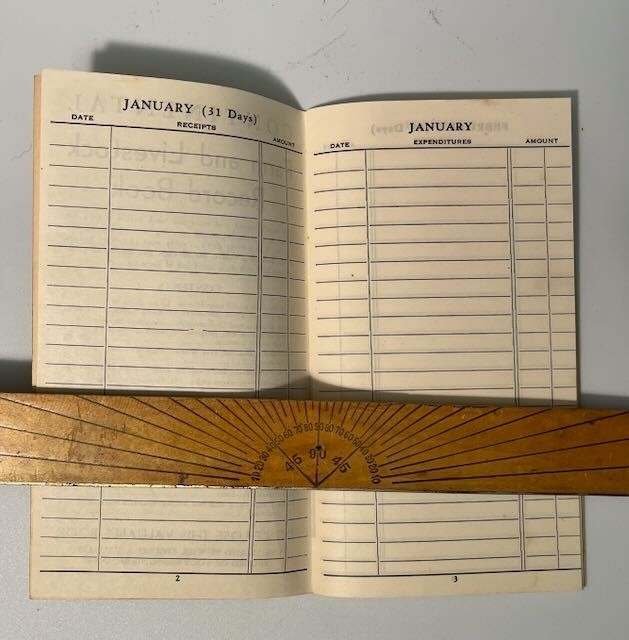 JANUARY (31 Days)
DATE RECEIPTS AMOUNT
2
JANUARY
DATE EXPENDITURES AMOUNT
3
10 20 30 40 50 60 70 80 90 80 70 60 50 40 30 20 10
45 90 45